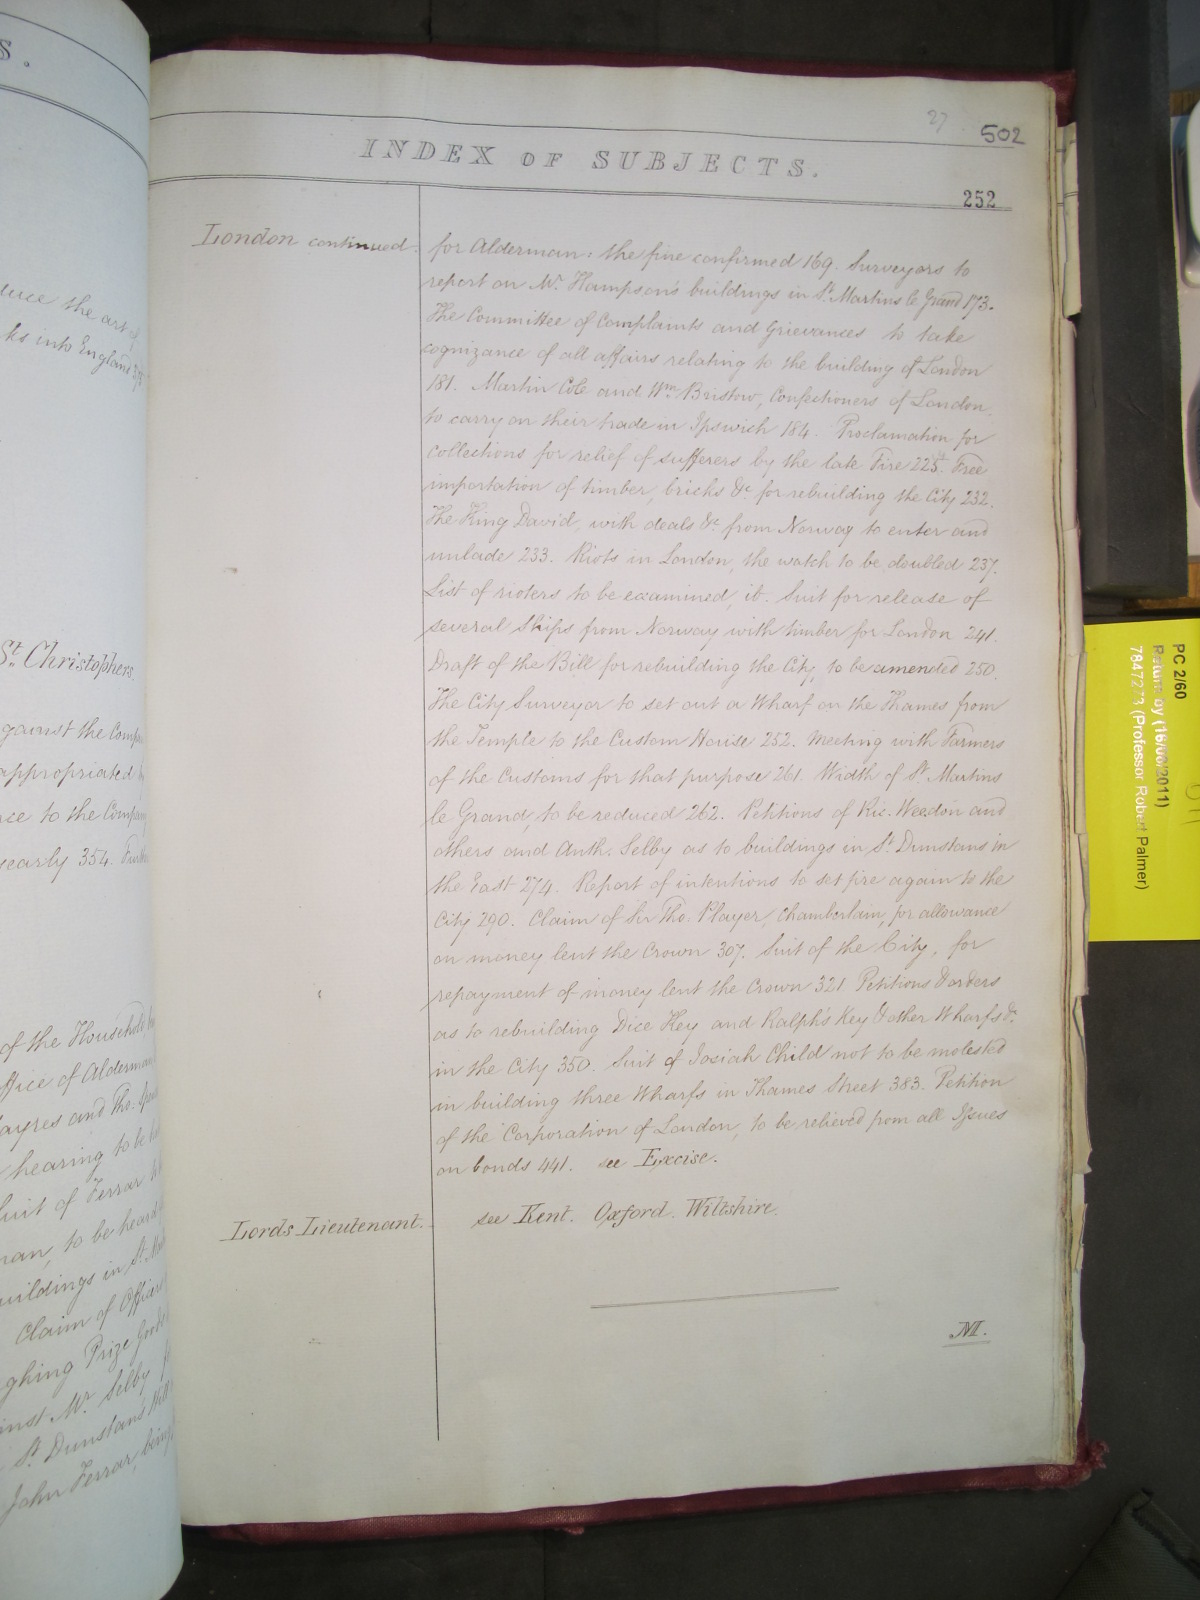 S.
duce the art of
ks into England
St. Christophers.
gainst the Comp
appropriated
ce to the Company
yearly 354.
of the Household
ffice of Alderman
ayres and Tho.
hearing to be
Suit of Ferrar
man, to be heard
uildings in St.
Claim of Officers
ghing Prize Goods
inst Mr. Selby
St. Dunstan's Hill
John Ferrar, being
27
502
INDEX OF SUBJECTS.
252
London continued.
for Alderman: the fine confirmed 169. Surveyors to
report on Mr. Hampson's buildings in St. Martins le Grand 173.
The Committee of Complaints and Grievances to take
cognizance of all affairs relating to the building of London
181. Martin Cole and Wm. Bristow, Confectioners of London,
to carry on their trade in Ipswich 184. Proclamation for
collections for relief of sufferers by the late Fire 225. Free
importation of timber, bricks &c. for rebuilding the City 232.
The King David, with deals &c. from Norway to enter and
unlade 233. Riots in London, the watch to be doubled 237.
List of rioters to be examined, ib. Suit for release of
several Ships from Norway with timber for London 241.
Draft of the Bill for rebuilding the City, to be amended 250.
The City Surveyor to set out a Wharf on the Thames from
the Temple to the Custom House 252. Meeting with Farmers
of the Customs for that purpose 261. Width of St. Martins
le Grand, to be reduced 262. Petitions of Ric. Weedon and
others and Anth. Selby as to buildings in St. Dunstans in
the East 274. Report of intentions to set fire again to the
City 290. Claim of Sir Tho. Player, Chamberlain, for allowance
on money lent the Crown 307. Suit of the City, for
repayment of money lent the Crown 321 Petitions & orders
as to rebuilding Dice Key and Ralph's Key & other Wharfs &c.
in the City 350. Suit of Josiah Child not to be molested
in building three Wharfs in Thames Street 383. Petition
of the Corporation of London, to be relieved from all Issues
on bonds 441. see Excise.
Lords Lieutenant.
see Kent. Oxford. Wiltshire.
M.
PC 2/60
Return by (16/08/2011)
7847273 (Professor Robert Palmer)